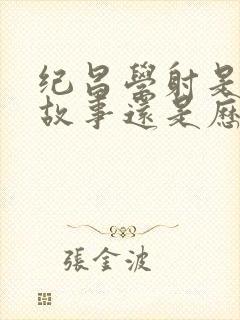 纪昌學射是
故事還是历
張金波